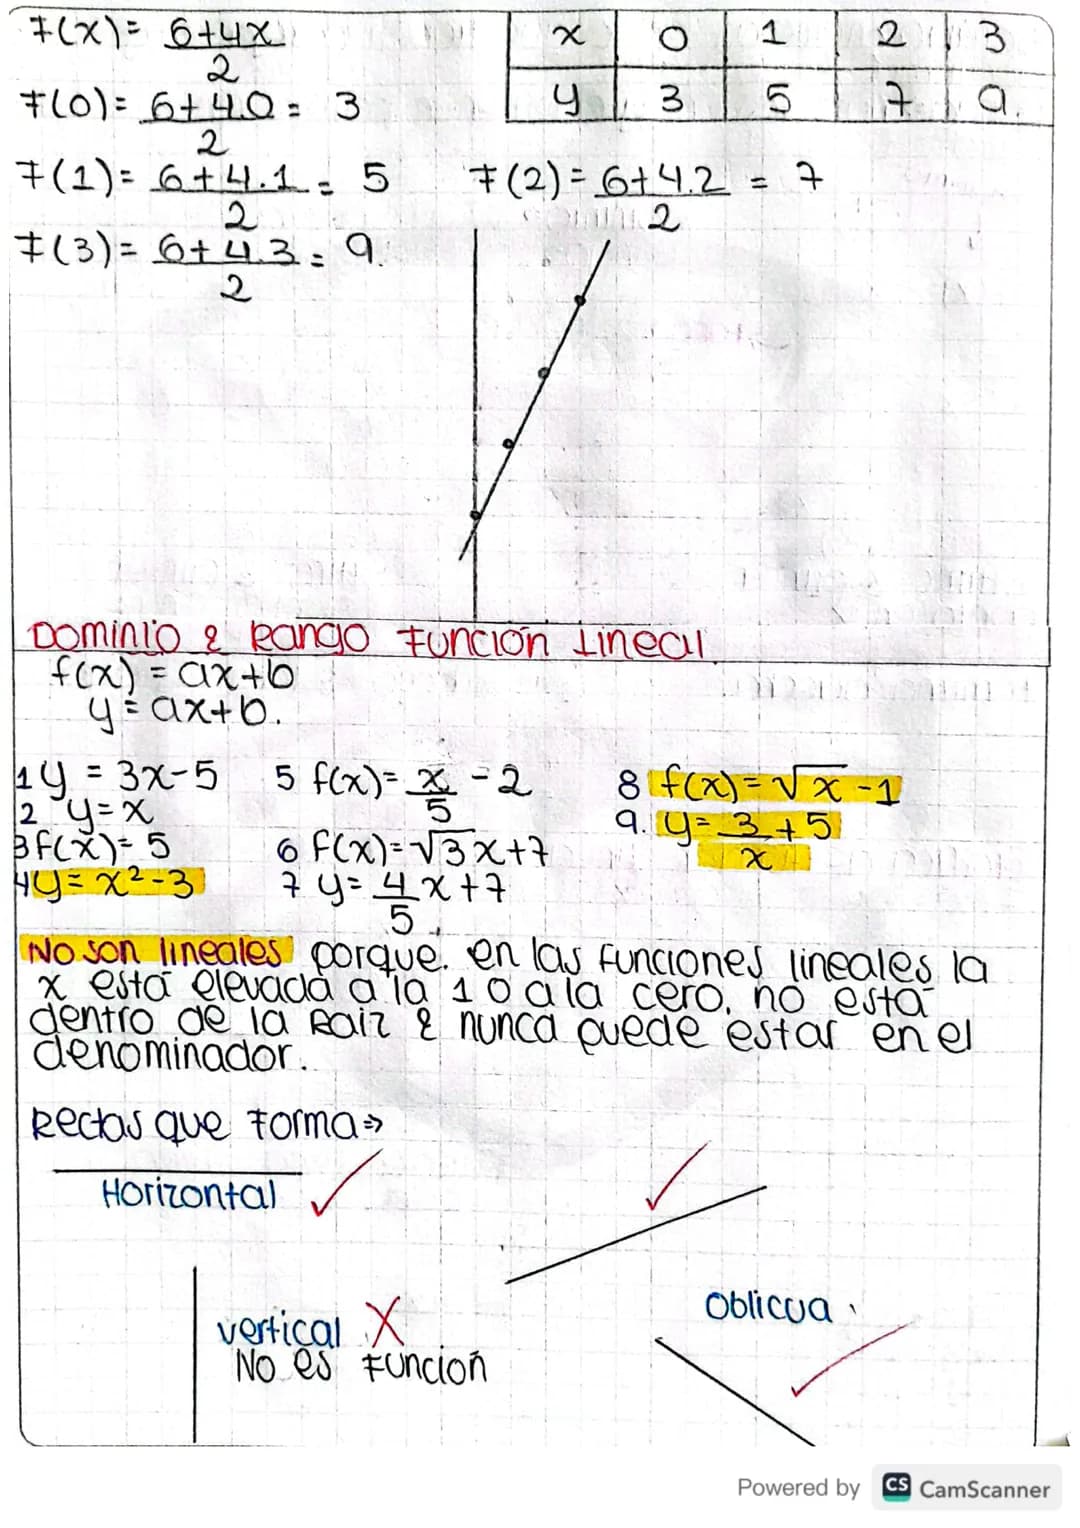 f(x)= 6+4x / 2
x 0 1 2 3
y 3 5 7 9
f(0)= 6+4.0 / 2 = 3
f(1)= 6+4.1 / 2 = 5
f(2)= 6+4.2 / 2 = 7
f(3)= 6+4.3 / 2 = 9.
Dominio & Rango Función Lineal
f(x) = ax+b
y = ax+b.
1 y = 3x-5
2 y=x
3 f(x)= 5
4 y= x²-3
5 f(x)= x/5 -2
6 f(x)=√3x+7
7 y= 4/5 x+7
8 f(x)=√x -1
9. y= 3/x +5
No son lineales porque. en las funciones lineales la
x está elevada a la 1 o a la cero. no está
dentro de la Raiz & nunca puede estar en el
denominador.
Rectas que Forma⇒
Horizontal ✓
✓
vertical X
No es Función
oblicua
✓
Powered by CS CamScanner